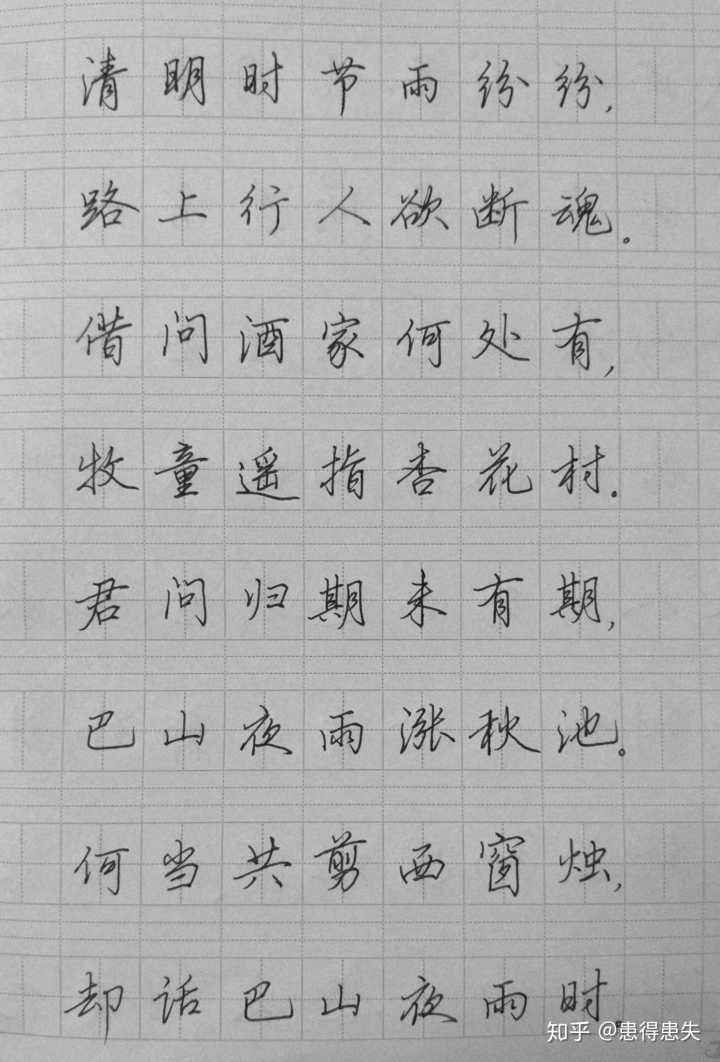 清明时节雨纷纷，
路上行人欲断魂。
借问酒家何处有，
牧童遥指杏花村.
君问归期未有期，
巴山夜雨涨秋池。
何当共剪西窗烛，
却话巴山夜雨时。
知乎 @患得患失